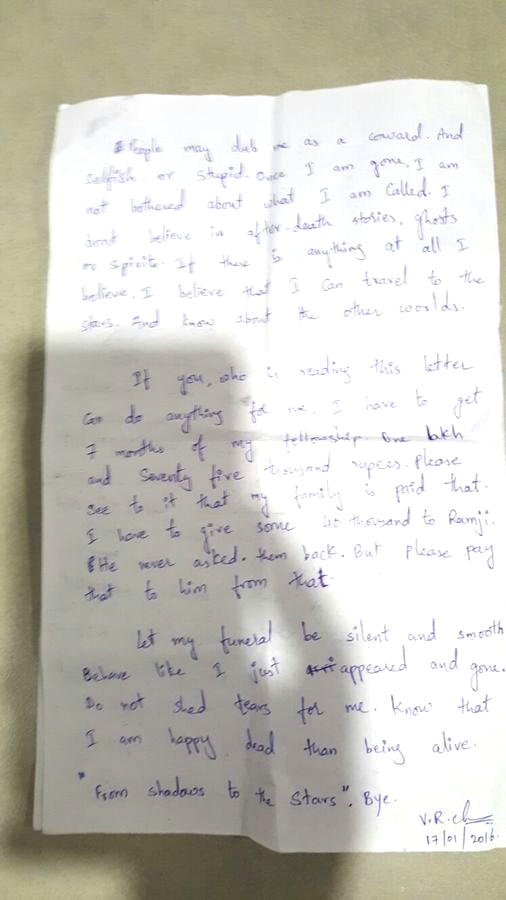 People may dub me as a coward. And
selfish, or stupid. Once I am gone. I am
not bothered about what I am called. I
dont believe in after-death stories, ghosts
or spirits. If there is anything at all I
believe, I believe that I can travel to the
stars. And know about the other worlds.
If you, who is reading this letter
can do anything for me, I have to get
7 months of my fellowship. One lakh
and seventy five thousand rupees. Please
see to it that my family is paid that.
I have to give some 40 thousand to Ramji.
He never asked them back. But please pay
that to him from that.
Let my funeral be silent and smooth
Behave like I just appeared and gone.
Do not shed tears for me. Know that
I am happy dead than being alive.
"From shadows to the stars". Bye.
V.R.
17/01/2016